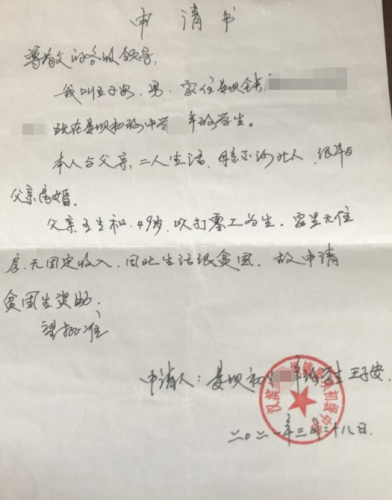 申请书
尊敬的各级领导:
我叫王子安,男,家住娄坝镇
现在娄坝初级中学年级学生。
本人与父亲二人生活,母亲河北人,很早与
父亲离婚。
父亲王生和,49岁,以打零工为生,家里无住
房,无固定收入,因此生活很贫困,故申请
贫困生资助。
望批准
申请人:娄坝初年级学生 王子安
二〇二一年三月二十八日.